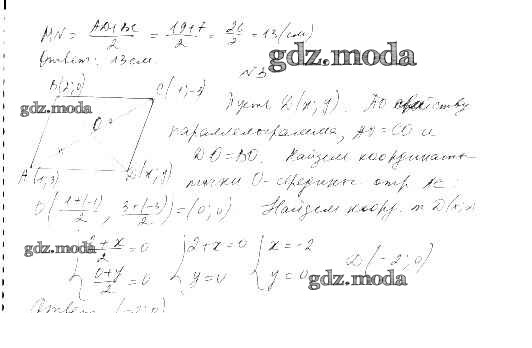 MN = AD+BC/2 = 19+7/2 = 26/2 = 13 (см)
Ответ: 13 см.
gdz.moda
N3
B(2;0)
C(1;-3)
gdz.moda
O
A(1;3)
D(x;y)
Пусть D(x;y). По свойству
параллелограмма, AO=CO и
DO=BO. Найдем координаты
точки O-середины отр. AC:
O(1+(-1)/2, 3+(-3)/2) = (0;0) Найдем коорд. т. D(x;y)
{2+x/2=0 {2+x=0 {x=-2 D(-2;0)
{0+y/2=0 {y=0 {y=0
gdz.moda
gdz.moda
Ответ: (-2;0)